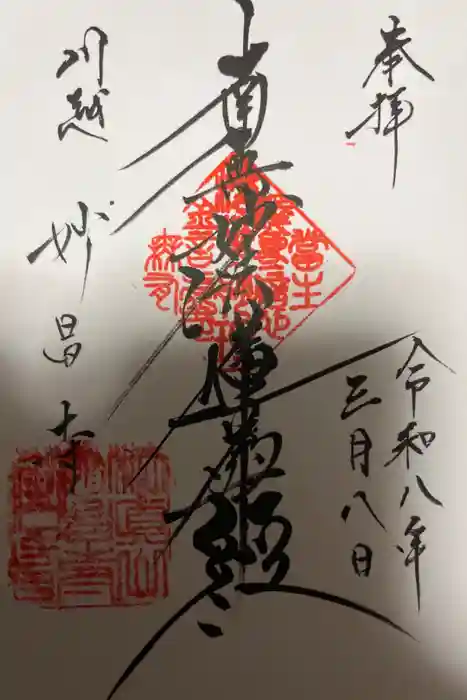 奉拝
令和八年
三月八日
南無妙法蓮華経
川越
妙昌寺